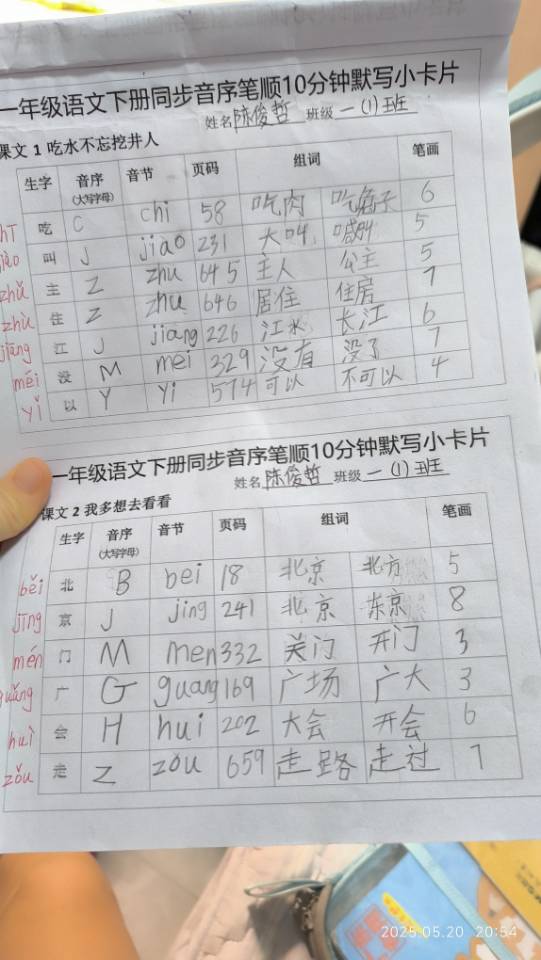 一年级语文下册同步音序笔顺10分钟默写小卡片
姓名 陈俊哲 班级 一(1)班
课文 1 吃水不忘挖井人
生字 音序 (大写字母) 音节 页码 组词 笔画
吃 C chi 58 吃肉 6
jiào 叫 J jiao 231 大叫 喊叫 5
zhǔ 主 Z zhu 645 主人 公主 5
zhù 住 Z zhu 646 居住 住房 7
jiāng 江 J jiang 226 江水 长江 6
méi 没 M mei 329 没有 没了 7
yǐ 以 Y yi 574 可以 不可以 4
一年级语文下册同步音序笔顺10分钟默写小卡片
姓名 陈俊哲 班级 一(1)班
课文 2 我多想去看看
生字 音序 (大写字母) 音节 页码 组词 笔画
běi 北 B bei 18 北京 北方 5
jīng 京 J jing 241 北京 东京 8
mén 门 M men 332 关门 开门 3
guǎng 广 G guang 169 广场 广大 3
huì 会 H hui 202 大会 开会 6
zǒu 走 Z zǒu 659 走路 走过 7
2025.05.20 20:54